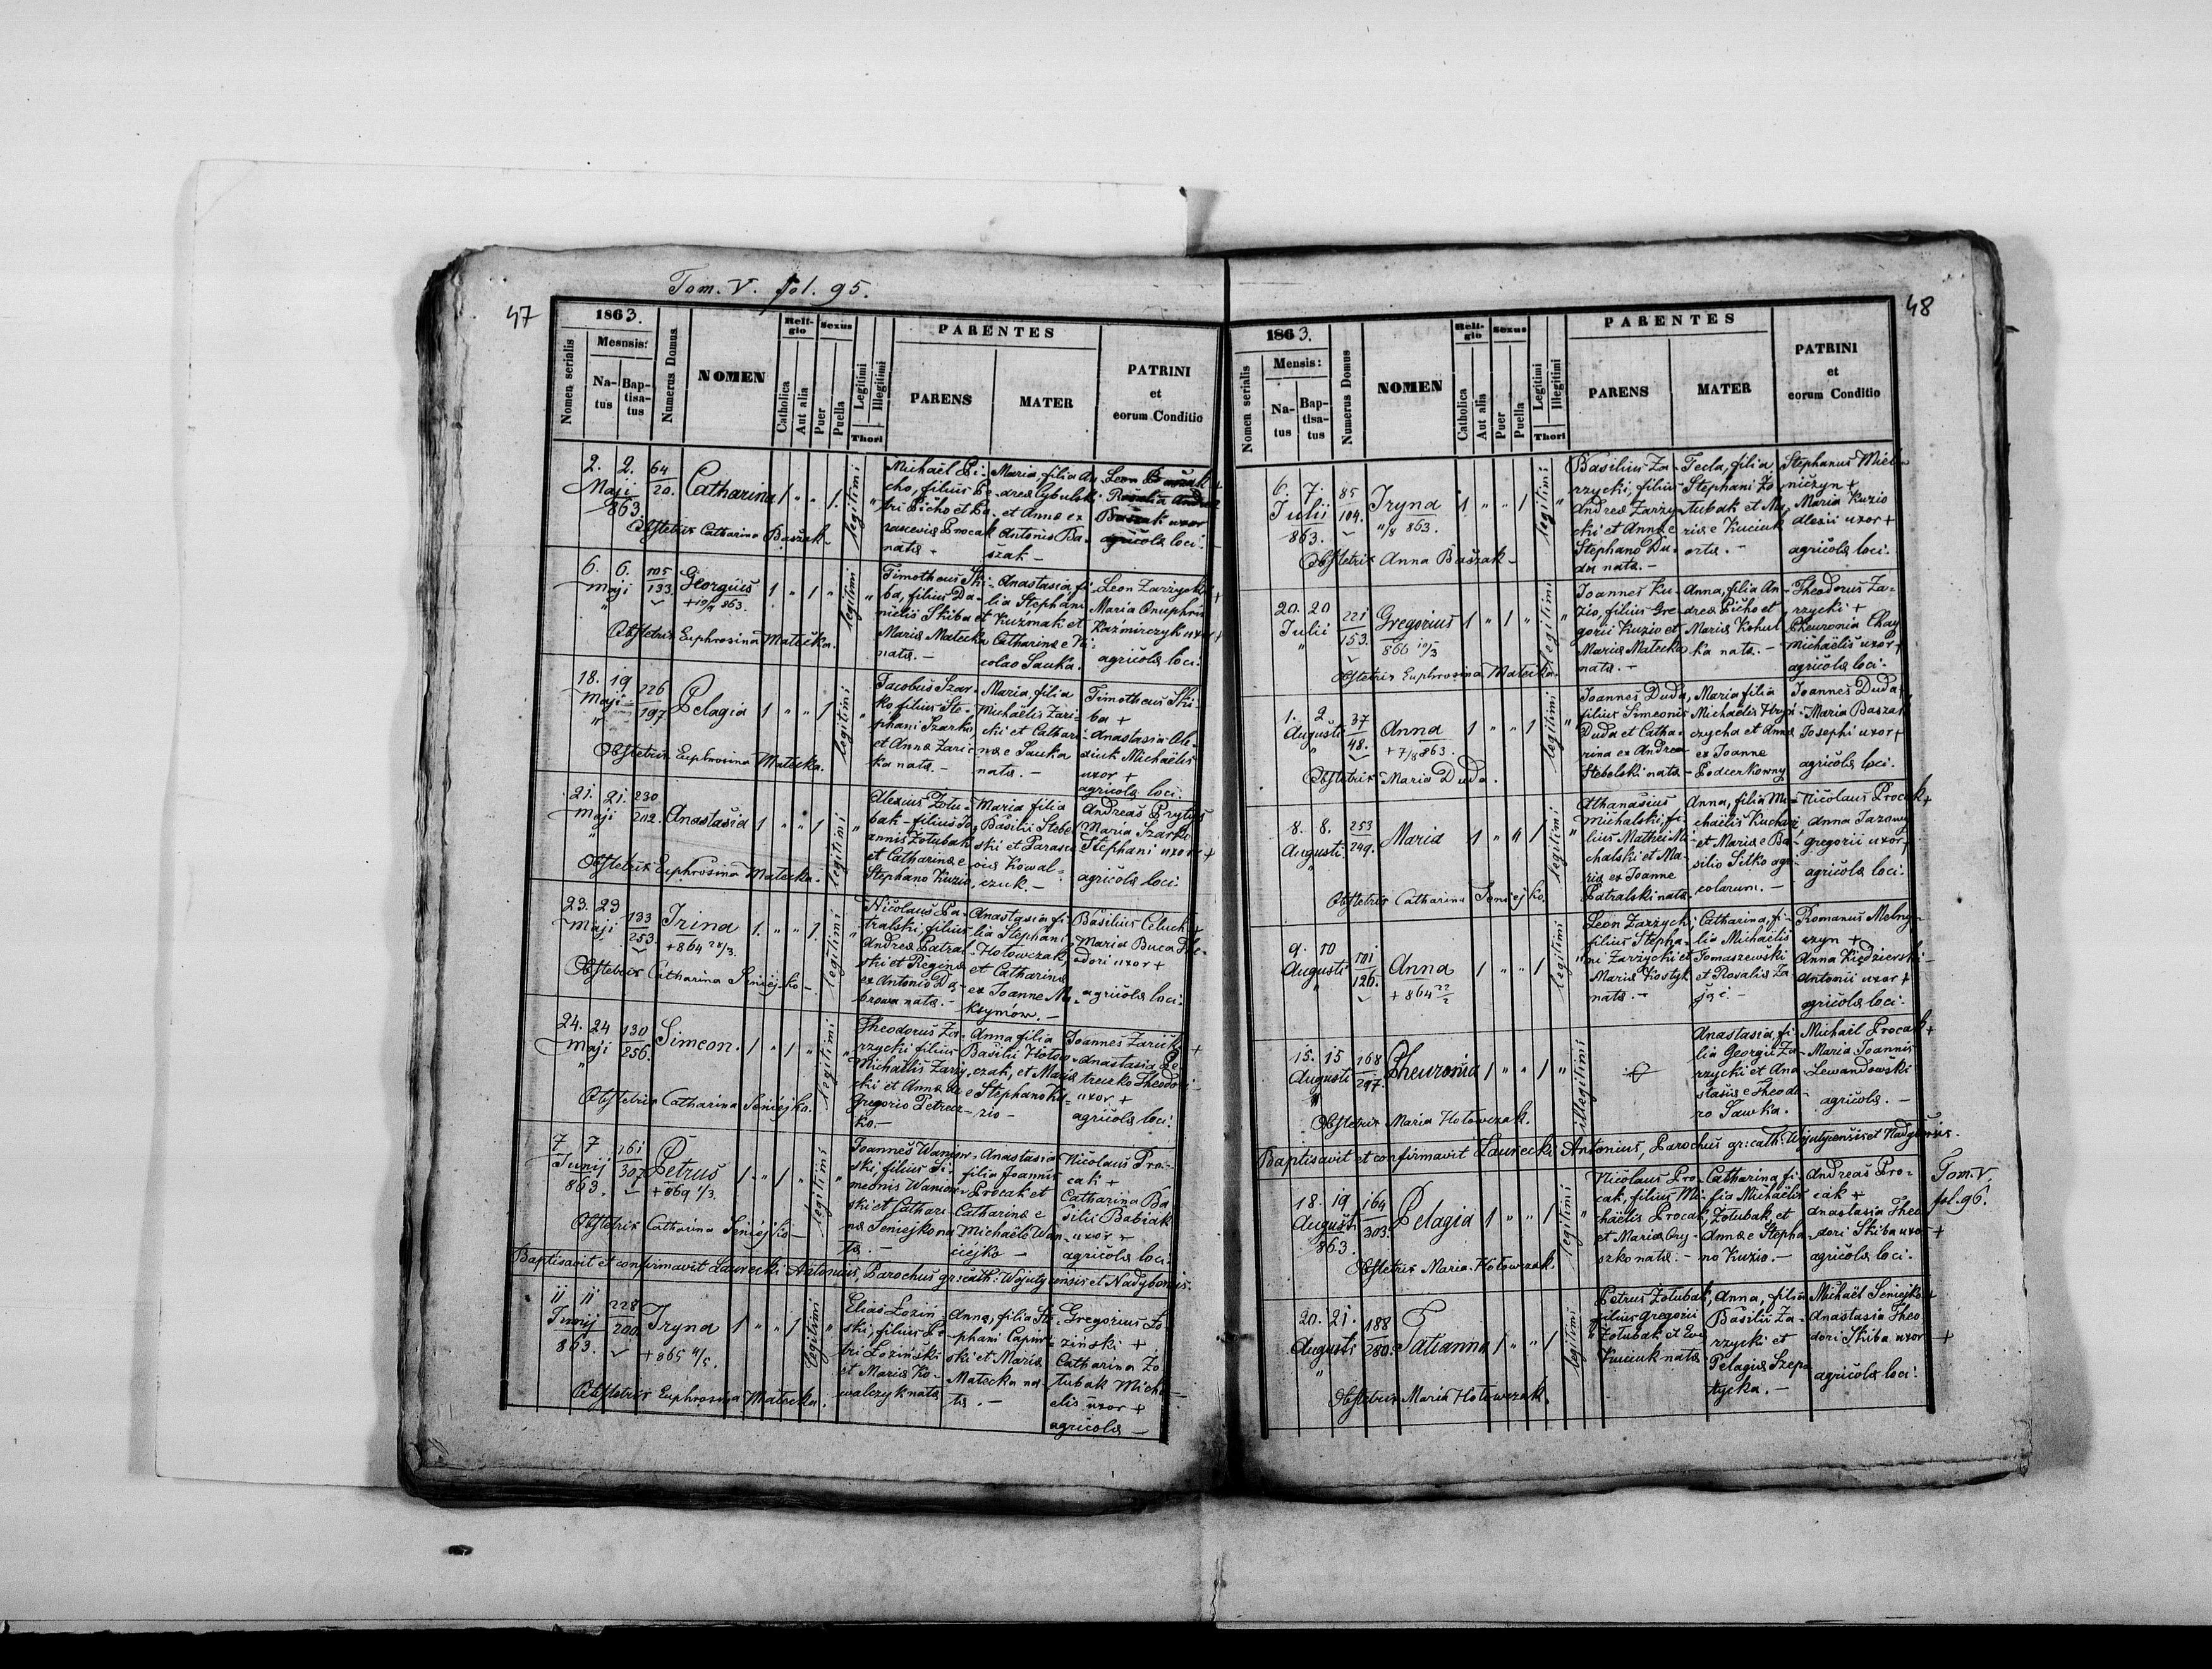 Tom. V. fol. 95.
47
1863.
Mesnsis:
Nomen serialis
Na-
tus
Bap-
tisa-
tus
Numerus Domus
NOMEN
Reli-
gio
Catholica
Aut alia
Sexus
Puer
Puella
Legitimi
Illegitimi
Thori
PARENTES
PARENS
MATER
PATRINI
et
eorum Conditio
2. 2.
Maji
863.
64
20.
Catharina
1 " " 1.
legitimi
"
Michaël Pi-
cho, filius Pe-
tri Picho et Pa-
rascevia Procak
nata -
Maria, filia An-
drea Cybulski
et Anna ex
Antonio Ba-
szak -
Leon Baszak +
Rosalia Andrea
Baszak uxor
agricola loci. -
Obstetrix Catharina Baszak -
6. 6.
Maji
"
105
133
Georgius
+ 863.
1 " 1 "
legitimi
"
Timotheus Ski-
ba, filius Da-
nielis Skiba et
Maria Matecka
nata. -
Anastasia, fi-
lia Stephani
Kuzmak et
Catharina e Ni-
colao Sauka.
Leon Zarzycki +
Maria Onuphrii
Kazmirczyk uxor +
agricola loci.
Obstetrix Euphrosina Matecka.
18. 19
Maji
"
226
197
Pelagia
1 " " 1
legitimi
"
Jacobus Szar-
ko filius Ste-
phani Szarko,
et Anna Zaric-
ka nata. -
Maria, filia
Michaëlis Zari-
cki et Cathari-
na e Sauka
nata. -
Timotheus Ski-
ba +
Anastasia Ole-
xiuk Michaëlis
uxor +
agricola loci.
Obstetrix Euphrosina Matecka.
21. 21.
Maji
230
202.
Anastasia
1 " " 1
legitimi
"
Alexius Zotu-
bak - filius Jo-
annis Zotubak
et Catharina e
Stephano Kuzio,
Maria filia
Basilii Stebel-
ski et Parasce-
via Kowal-
czuk. -
Andreas Prytys
Maria Szarko
Stephani uxor +
agricola loci.
Obstetrix Euphrosina Matecka.
23. 23
Maji
133
253.
Irina
+ 864 28/3.
1. " " 1.
legitimi
"
Nicolaus Pa-
tralski, filius
Andrea Patral-
ski et Regina
ex Antonio Da-
browa nata. -
Anastasia fi-
lia Stephani
Hotowczak,
et Catharina
ex Joanne Ma-
ksymów. -
Basilius Celuch +
Maria Buca The-
odori uxor +
agricola loci.
Obstetrix Catharina Seniejko -
24. 24
Maji
"
130
256.
Simeon.
1 " 1 "
legitimi
"
Theodorus Za-
rzycki filius
Michaëlis Zarzy-
cki et Anna de
Gregorio Petrecz-
ko. -
Anna filia
Basilii Hotow-
czak, et Maria
e Stephano Ku-
zio -
Joannes Zaricki +
Anastasia Pe-
treczko Theodori -
uxor +
agricola loci.
Obstetrix Catharina Seniejko.
7 7
Junij
863.
161
307
Petrus
+ 869 1/3.
1 " 1 "
legitimi
"
Joannes Waniow-
ski, filius Si-
meonis Waniow-
ski et Cathari-
na Seniejko na
ta. -
Anastasia
filia Joannis
Procak et
Catharina e
Michaële Wan-
ciejko -
Nicolaus Pro-
cak +
Catharina Ba
silii Babiak
uxor +
agricola loci.
Obstetrix Catharina Seniejko -
Baptisavit et confirmavit Laurecki Antonius, Parochus gr: cath: Wojutycensis et Nadybensis.
11 11
Junij
863.
228
200.
Iryna
+ 865 11/5.
1 " " 1
legitimi
"
Elias Łoziń-
ski, filius Pe-
tri Łoziński
et Maria Ko-
walczyk nata
Anna, filia Ste-
phani Capiw-
ski et Maria
Matecka na-
ta. -
Gregorius Ło-
ziński +
Catharina Zo-
tubak Micha
elis uxor +
agricola -
Obstetrix Euphrosina Matecka.
48
1863.
Mensis:
Nomen serialis
Na-
tus
Bap-
tisa-
tus
Numerus Domus
NOMEN
Reli-
gio
Catholica
Aut alia
Sexus
Puer
Puella
Legitimi
Illegitimi
Thori
PARENTES
PARENS
MATER
PATRINI
et
eorum Conditio
6. 7.
Julii
863.
85
104.
Iryna
11/8 863.
1. " " 1
legitimi
"
Basilius Za-
rzycki, filius
Andrea Zarzy-
cki et Anna e
Stephano Du-
da nata. -
Tecla, filia
Stephani Zo
tubak et Ma
ria e Kuciuk
orta. -
Stephanus Miel-
niczyn +
Maria Kuzio
Alexii uxor +
agricola loci.
Obstetrix Anna Baszak -
20. 20
Julii
"
221
153.
Gregorius
866 10/3
1 " 1 "
legitimi
"
Joannes Ku-
zio, filius Gre-
gorii Kuzio et
Maria Matecka
nata. -
Anna, filia An-
drea Picho et
Maria Kohut
ka nata. -
Theodorus Za-
rzycki +
Pheuronia Chay
Michaëlis uxor +
agricola loci.
Obstetrix Euphrosina Matecka.
1. 2
Augusti
"
37
48.
Anna
+ 7/8 863.
1 " " 1
legitimi
"
Joannes Duda,
filius Simeonis
Duda et Catha-
rina ex Andrea
Stebelski nata -
Maria filia
Michaëlis Hryni-
czycha et Anna
ex Joanne
Podcerkowny
Joannes Duda +
Maria Baszak
Josephi uxor +
agricola loci.
Obstetrix Maria Duda.
8. 8.
Augusti.
"
253
249.
Maria
1 " " 1
legitimi
"
Athanasius
Michalski, fi-
lius Mathei Mi-
chalski et Ma-
ria ex Joanne
Patralski nata -
Anna, filia Mi-
chaëlis Kuchar
et Maria e Ba-
silio Sitko agri-
colarum. -
Nicolaus Procak +
Anna Jazowy
Gregorii uxor +
agricola loci.
Obstetrix Catharina Seniejko.
9. 10
Augusti
"
101
126.
Anna
+ 864 22/2
1 " " 1
legitimi
"
Leon Zarzycki,
filius Stepha-
ni Zarzycki et
Maria Kostyk
nata. -
Catharina, fi-
lia Michaëlis
Tomaszewski
et Rosalia Za-
jac. -
Romanus Melny-
czyn +
Anna Kiędzierski -
Antonii uxor +
agricola loci.
15. 15
Augusti
"
168
297.
Pheuronia
1 " " 1
"
illegitimi
Anastasia, fi-
lia Georgii Za-
rzycki et Ana
stasia e Theodo-
ro Sawka.
Michaël Procak +
Maria Joannis
Lewandowski
agricola. -
Obstetrix Maria Hotowczak.
Baptisavit et confirmavit Laurecki Antonius, Parochus gr: cath: Wojutycensis et Nadybensis.
Tom. V.
fol. 96.
18. 19
Augusti
863.
164
303.
Pelagia
1 " " 1
legitimi
"
Nicolaus Pro-
cak, filius Mi-
chaëlis Procak,
et Maria Ory-
szko nata. -
Catharina fi-
lia Michaëlis
Zotubak, et
Anna e Stepha-
no Kuzio. -
Andreas Pro-
cak +
Anastasia Theo
dori Skiba uxor +
agricola loci.
Obstetrix Maria Hotowczak.
20. 21.
Augusti
"
188
280.
Tatianna
1 " " 1
legitimi
"
Petrus Zotubak,
filius Gregorii
Zotubak et Eva
Kuciuk nata
Anna, filia
Basilii Za-
rzycki et
Pelagia Szepe
tycka. -
Michaël Seniejko +
Anastasia Theo
dori Skiba uxor +
agricola loci.
Obstetrix Maria Hotowczak.